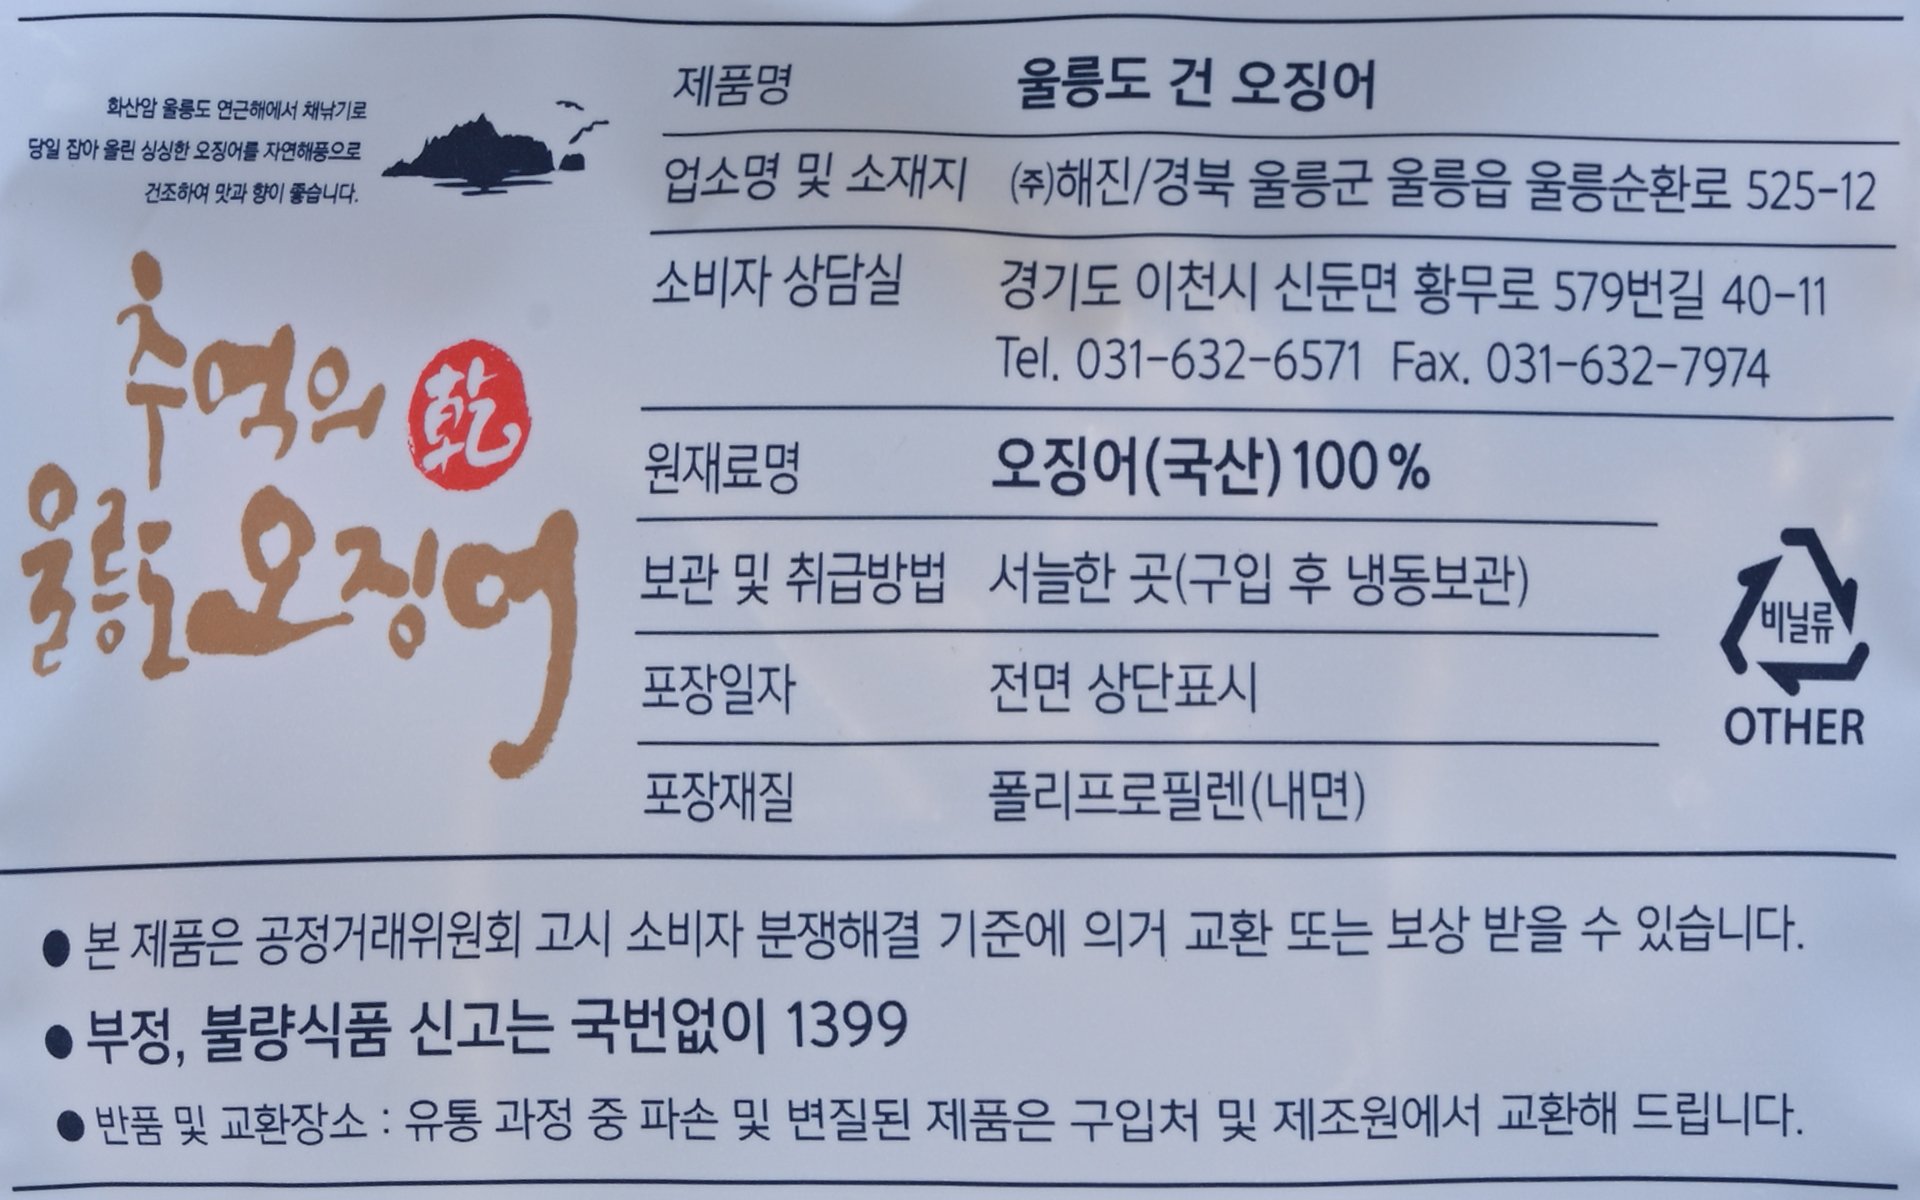 화산암 울릉도 연근해에서 채낚기로
당일 잡아 올린 싱싱한 오징어를 자연해풍으로
건조하여 맛과 향이 좋습니다.
추억의 乾
울릉도 오징어
제품명 울릉도 건 오징어
업소명 및 소재지 ㈜해진/경북 울릉군 울릉읍 울릉순환로 525-12
소비자 상담실 경기도 이천시 신둔면 황무로 579번길 40-11
Tel. 031-632-6571 Fax. 031-632-7974
원재료명 오징어(국산)100%
보관 및 취급방법 서늘한 곳(구입 후 냉동보관)
포장일자 전면 상단표시
포장재질 폴리프로필렌(내면)
비닐류
OTHER
● 본 제품은 공정거래위원회 고시 소비자 분쟁해결 기준에 의거 교환 또는 보상 받을 수 있습니다.
● 부정, 불량식품 신고는 국번없이 1399
● 반품 및 교환장소 : 유통 과정 중 파손 및 변질된 제품은 구입처 및 제조원에서 교환해 드립니다.